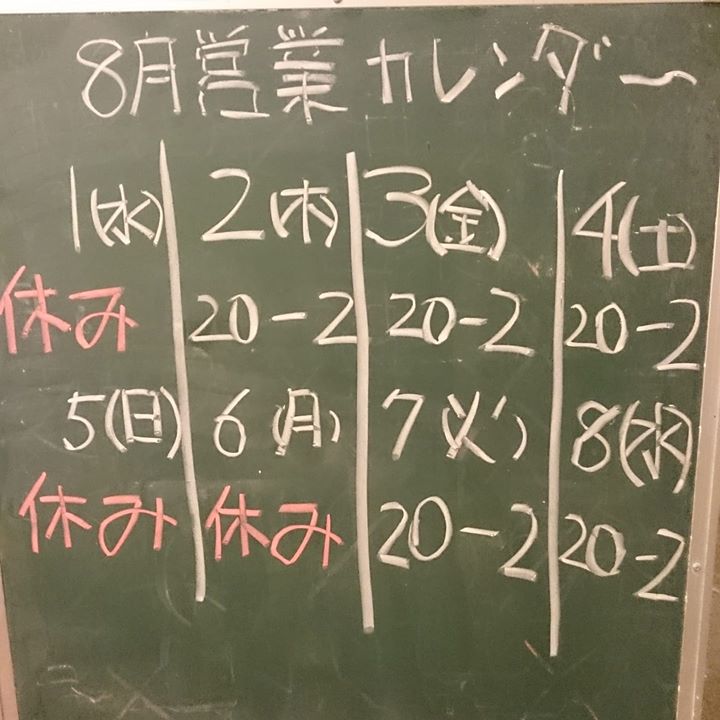 8月営業カレンダー
1(水) 2(木) 3(金) 4(土)
休み 20-2 20-2 20-2
5(日) 6(月) 7(火) 8(水)
休み 休み 20-2 20-2